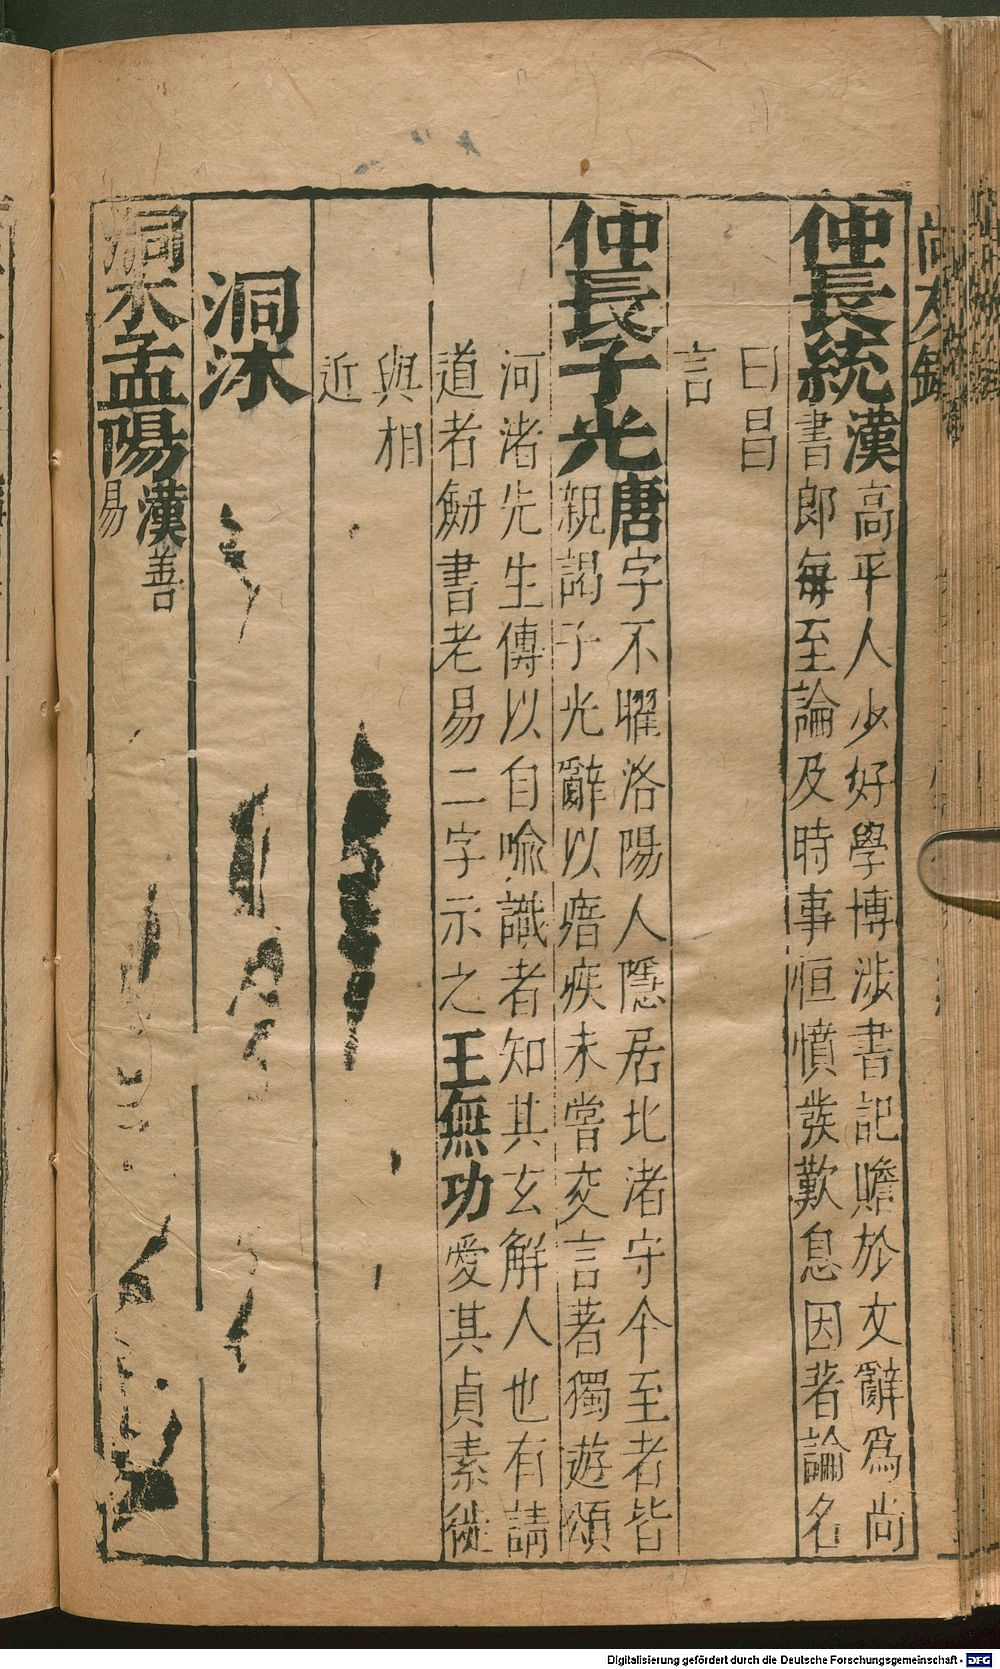 尚友錄
仲長統漢高平人少好學博涉書記贍於文辭爲尚
書郎每至論及時事恒憤發歎息因著論名
曰昌
言
仲長子光唐字不曜洛陽人隱居北渚守令至者皆
親謁子光辭以瘖疾未嘗交言著獨遊頌
河渚先生傳以自喻識者知其玄解人也有請
道者釼書老易二字示之王無功愛其貞素徙
與相
近
洞沐
洞木孟陽漢善
易
Digitalisierung gefördert durch die Deutsche Forschungsgemeinschaft - DFG